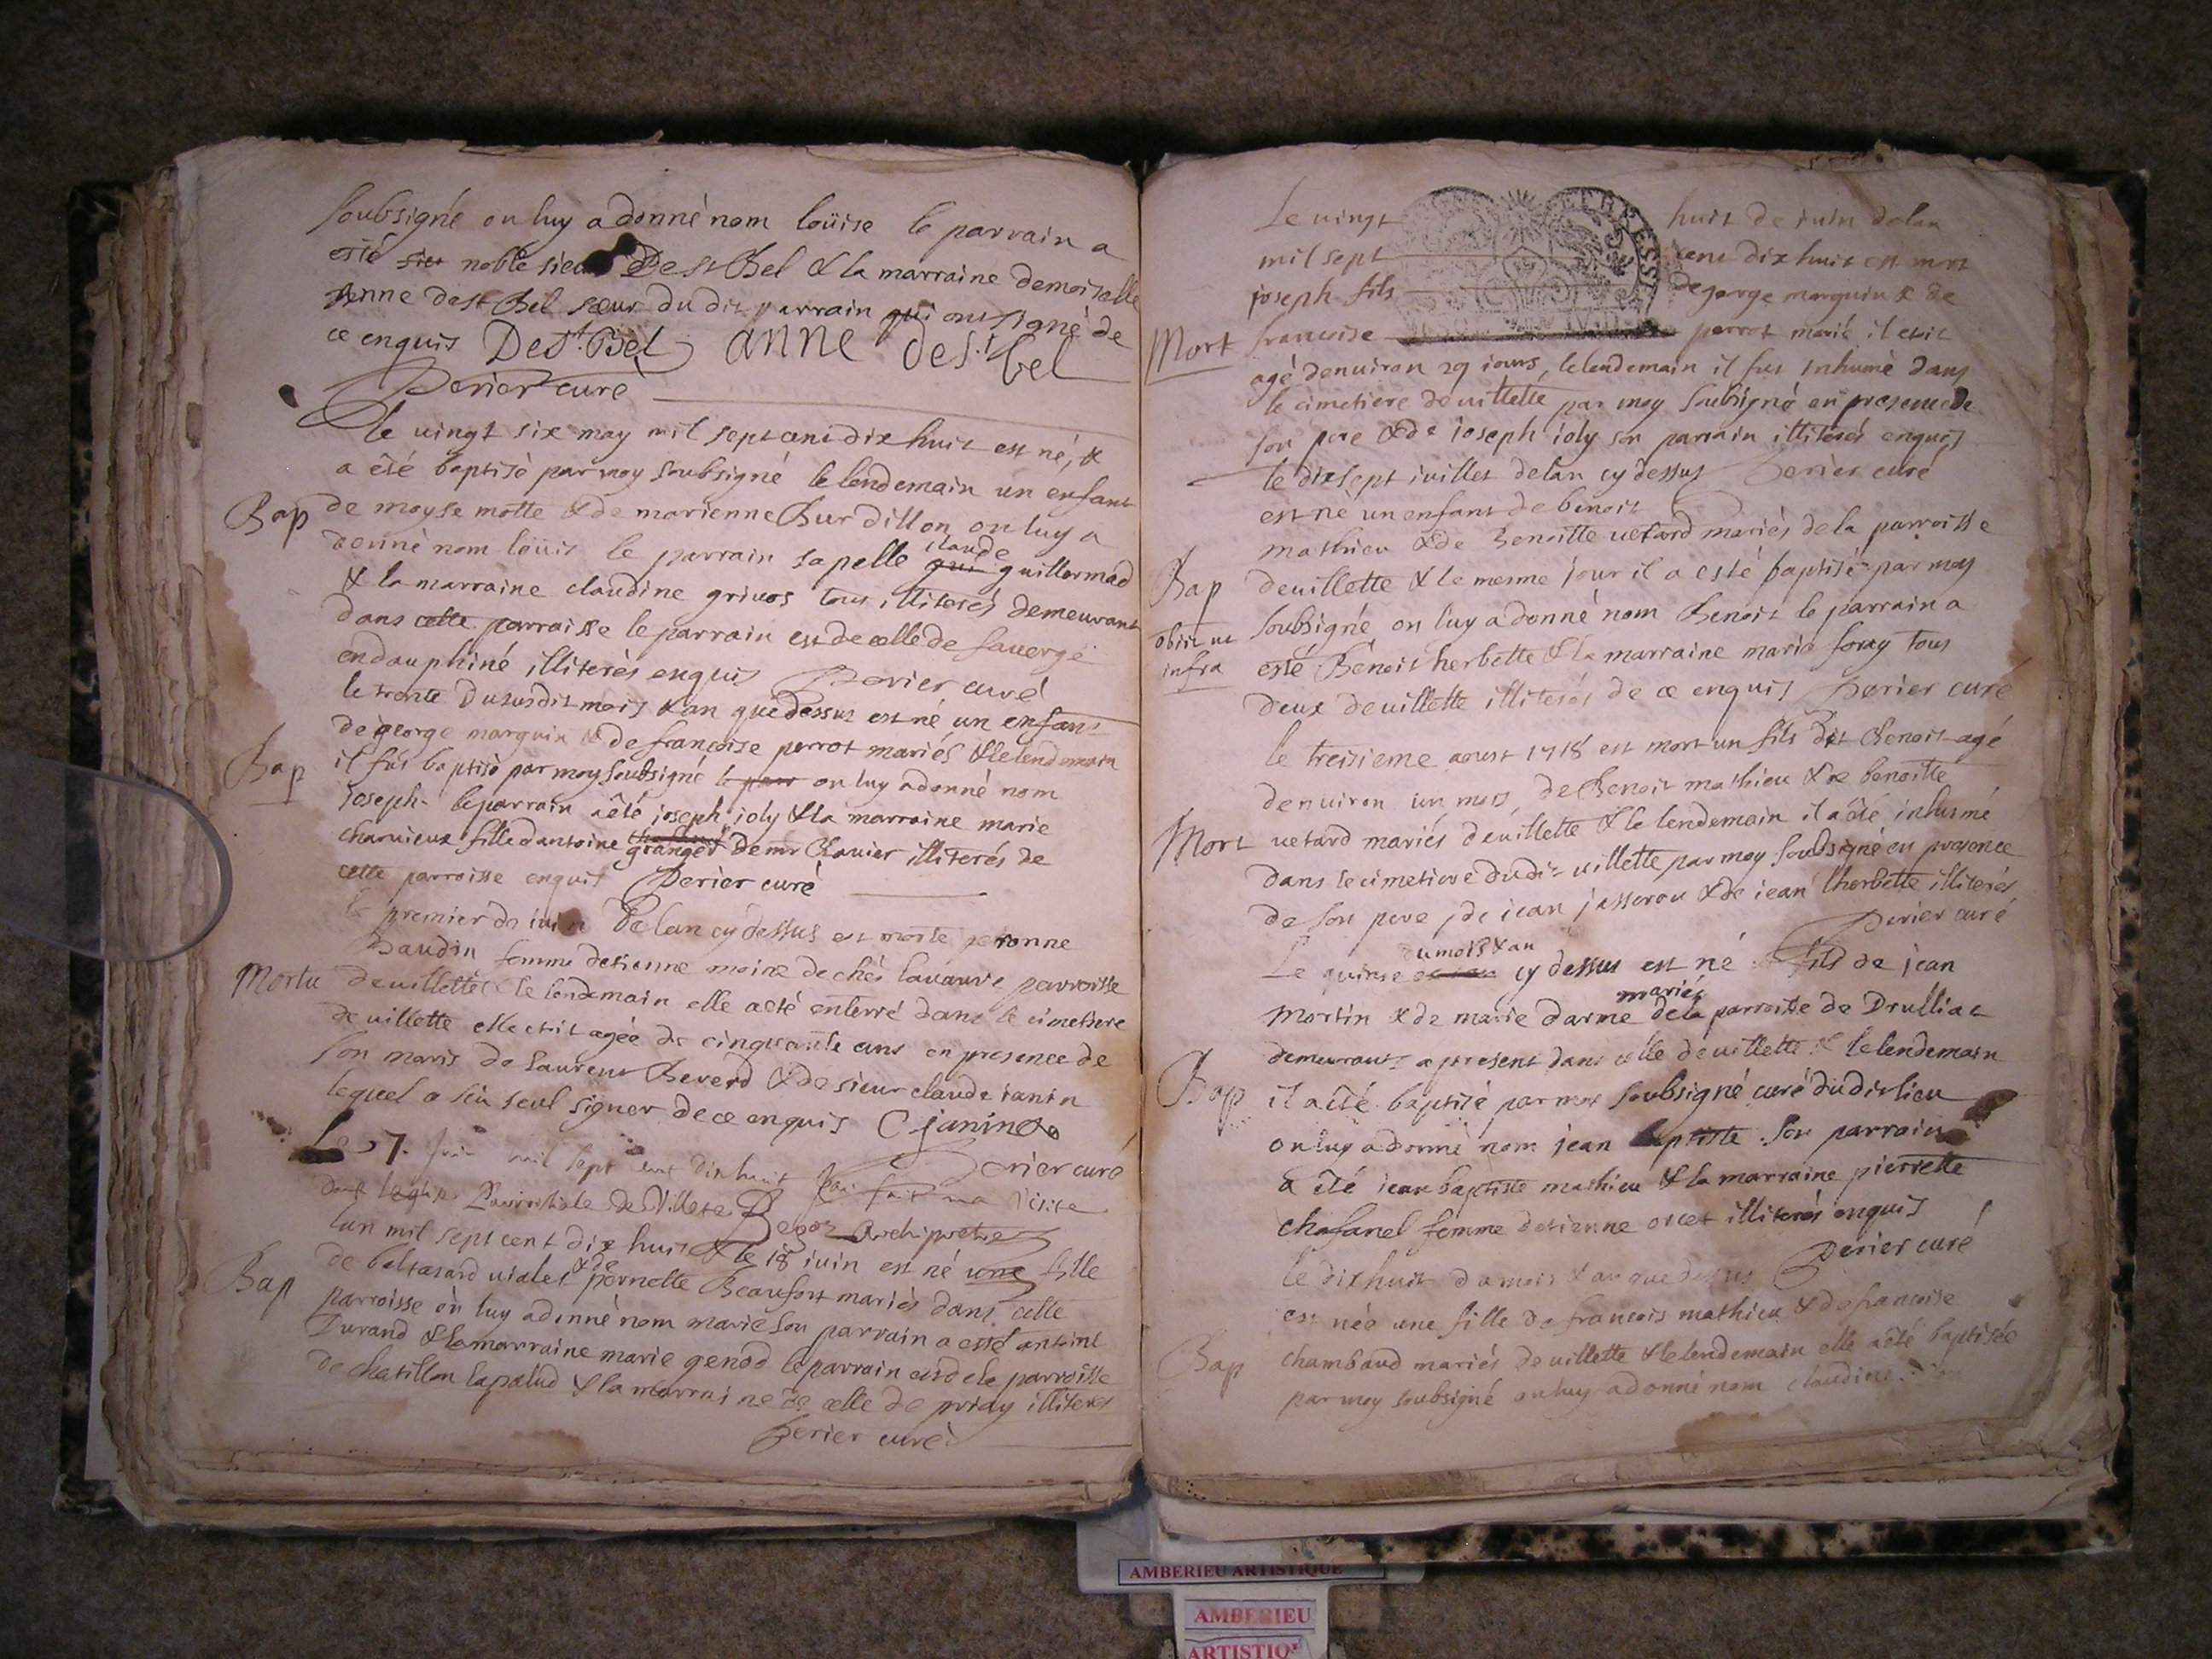 soubsigné on luy a donné nom loüise le parrain a
esté sieu noble sieur De st Bel & la marraine demoiselle
Anne de st Bel sœur du dit parrain qui ont signé de
ce enquis De St. Bel anne de s.t bel
Perier curé
Le vingt six may mil sept cent dix huit est né, &
a êté baptisé par moy soubsigné le lendemain un enfant
Bap
de moyse motte & de marienne Burdillon on luy a
donné nom loüis le parrain sapelle claude guillermad
& la marraine claudine grivos tous illiterés demeurant
dans cette parroisse le parrain est de celle de faverge
en dauphiné illiterés enquis Perier curé
le trente du susdit mois & an que dessus est né un enfant
de george marguin & de françoise perrot mariés & le lendemain
Bap
il fus baptisé par moy soubsigné on luy a donné nom
Joseph le parrain a êté joseph joly & la marraine marie
charvieux fille dantoine granger de mr Chavier illiterés de
cette parroisse enquis Perier curé
le premier de iuin de lan cy dessus est morte peronne
Baudin femme detienne moine de chés lavaure parroisse
Morte
de villette & le lendemain elle a eté enterré dans le cimetiere
de villette elle etit agée de cinquante ans en presence de
son maris de laurent Beverd & de sieur claude ianin
lequel a sçu seul signer de ce enquis C janin
Perier curé
Le 27. Juin mil sept cent dix huit Jai fait ma visite
dans leglise Parroissiale de Villete Archipretre
lan mil sept cent dix huit & le 18 iuin est né une fille
Bap
de baltasard vialet & de pernette Beaufort mariés dans cette
parroisse on luy a donné nom marie son parrain a esté antoine
Durand & la marraine marie genod le parrain est de la parroisse
de chatillon lapalud & la marraine de celle de priay illiteres
Perier curé
Le vingt huit de iuin de lan
mil sept cent dix huit est mort
joseph fils de george marguin & de
Mort
francoise perrot marié il etit
agé denviron 29 iours, le lendemain il fus inhumé dans
le cimetiere de villette par moy soubsigné en presence de
son pere & de ioseph ioly son parrain illiterés enquis
le dix sept iuillet de lan cy dessus Perier curé
est né un enfant de benoit
mathieu & de Benoitte vetard mariés de la parroisse
Bap
de villette & le mesme jour il a esté baptisé par moy
obiit ut
infra
soubsigné on luy a donné nom Benoit le parrain a
esté Benoit herbette & la marraine marie foray tous
deux de villette illiterés de ce enquis Perier curé
le treisieme aoust 1718 est mort un fils dit Benoit agé
denviron un mois, de Benoit mathieu & de benoitte
Mort
vetard mariés de villette & le lendemain il a êté inhumé
dans le cimetiere dudit villette par moy soubsigné en presence
de son pere, de iean jasserau & de iean lherbette illiterés
Perier curé
Le quinse du mois & an cy dessus est né fils de jean
martin & de marie darme mariés de la parroisse de Drulliat
demeurant a present dans celle de villette & le lendemain
Bap
il a êté baptisé par moy soubsigné curé dudit lieu
on luy a donné nom jean baptiste. son parrain
a êté iean baptiste mathieu & la marraine pierrette
chafanel femme detienne orcet illiterés enquis
Perier curé
le dix huit du mois & an que dessus
est née une fille de francois mathieu & de francoise
Bap
chambaud mariés de villette & le lendemain elle a êté baptisée
par moy soubsigné on luy a donné nom claudine.
AMBERIEU ARTISTIQUE
AMBERIEU
ARTISTIQ